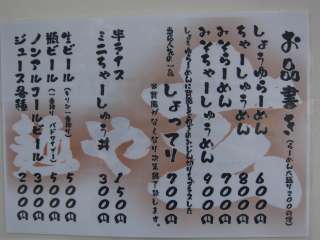 お品書き（らーめん大盛り200円増）
しょうゆらーめん 600円
ちゃーしゅうめん 800円
みそらーめん 700円
みそちゃーしゅうめん 900円
しょってり 700円
半ライス 150円
ミニちゃーしゅう丼 300円
生ビール（キリン一番搾り） 500円
瓶ビール（一番搾り バドワイザー） 500円
ノンアルコールビール 300円
ジュース各種 200円